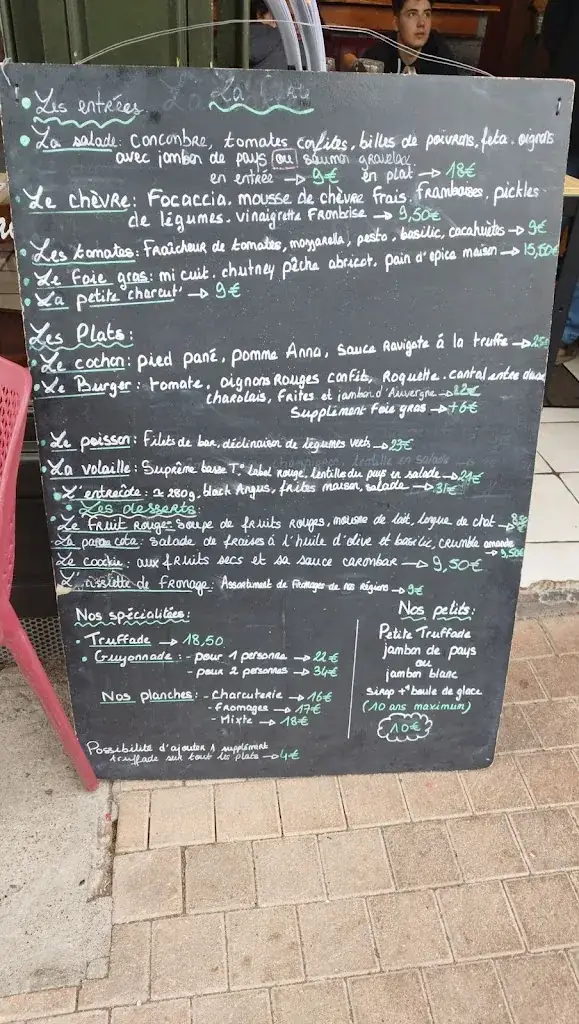 La Carte
Les entrées
La salade: Concombre, tomates confites, billes de poivrons, feta, oignons
avec jambon de pays ou saumon gravelax
en entrée → 9€ en plat → 18€
Le chèvre: Focaccia, mousse de chèvre frais, framboises, pickles
de légumes, vinaigrette Framboise → 9,50€
Les tomates: Fraîcheur de tomates, mozzarella, pesto, basilic, cacahuètes → 9€
Le Foie gras: mi cuit, chutney pêche abricot, pain d'epice maison → 15,50€
La petite charcut' → 9€
Les Plats:
Le cochon: pied pané, pomme Anna, Sauce Ravigote à la truffe → 25€
Le Burger: tomate, oignons Rouges confits, Roquette, cantal entre deux,
charolais, Frites et jambon d'Auvergne → 22€
Supplément Foie gras → +6€
Le poisson: Filets de bar, déclinaison de légumes verts → 23€
La volaille: Suprême basse T°, label rouge, lentilles du puy en salade → 21€
L'entrecôte: ≈ 280g, black Angus, frites maison, salade → 31€
Les desserts:
Le Fruit Rouge: Soupe de fruits Rouges, mousse de lait, langue de chat →
La panna cota: Salade de fraises à l'huile d'olive et basilic, crumble amande
→ 9,50€
Le cookie: aux fruits secs et sa sauce carambar → 9,50€
L'assiette de Fromage: Assortiment de Fromages de nos Régions → 9€
Nos spécialitées:
Truffade → 18,50
Guyonnade: - pour 1 personne → 22€
- pour 2 personnes → 34€
Nos planches: - Charcuterie → 16€
- Fromages → 17€
- Mixte → 18€
Possibilité d'ajouter 1 supplément
truffade sur tout les plats → 4€
Nos petits:
Petite Truffade
jambon de pays
ou
jambon blanc
sirop + 1 boule de glace
(10 ans maximum)
10€